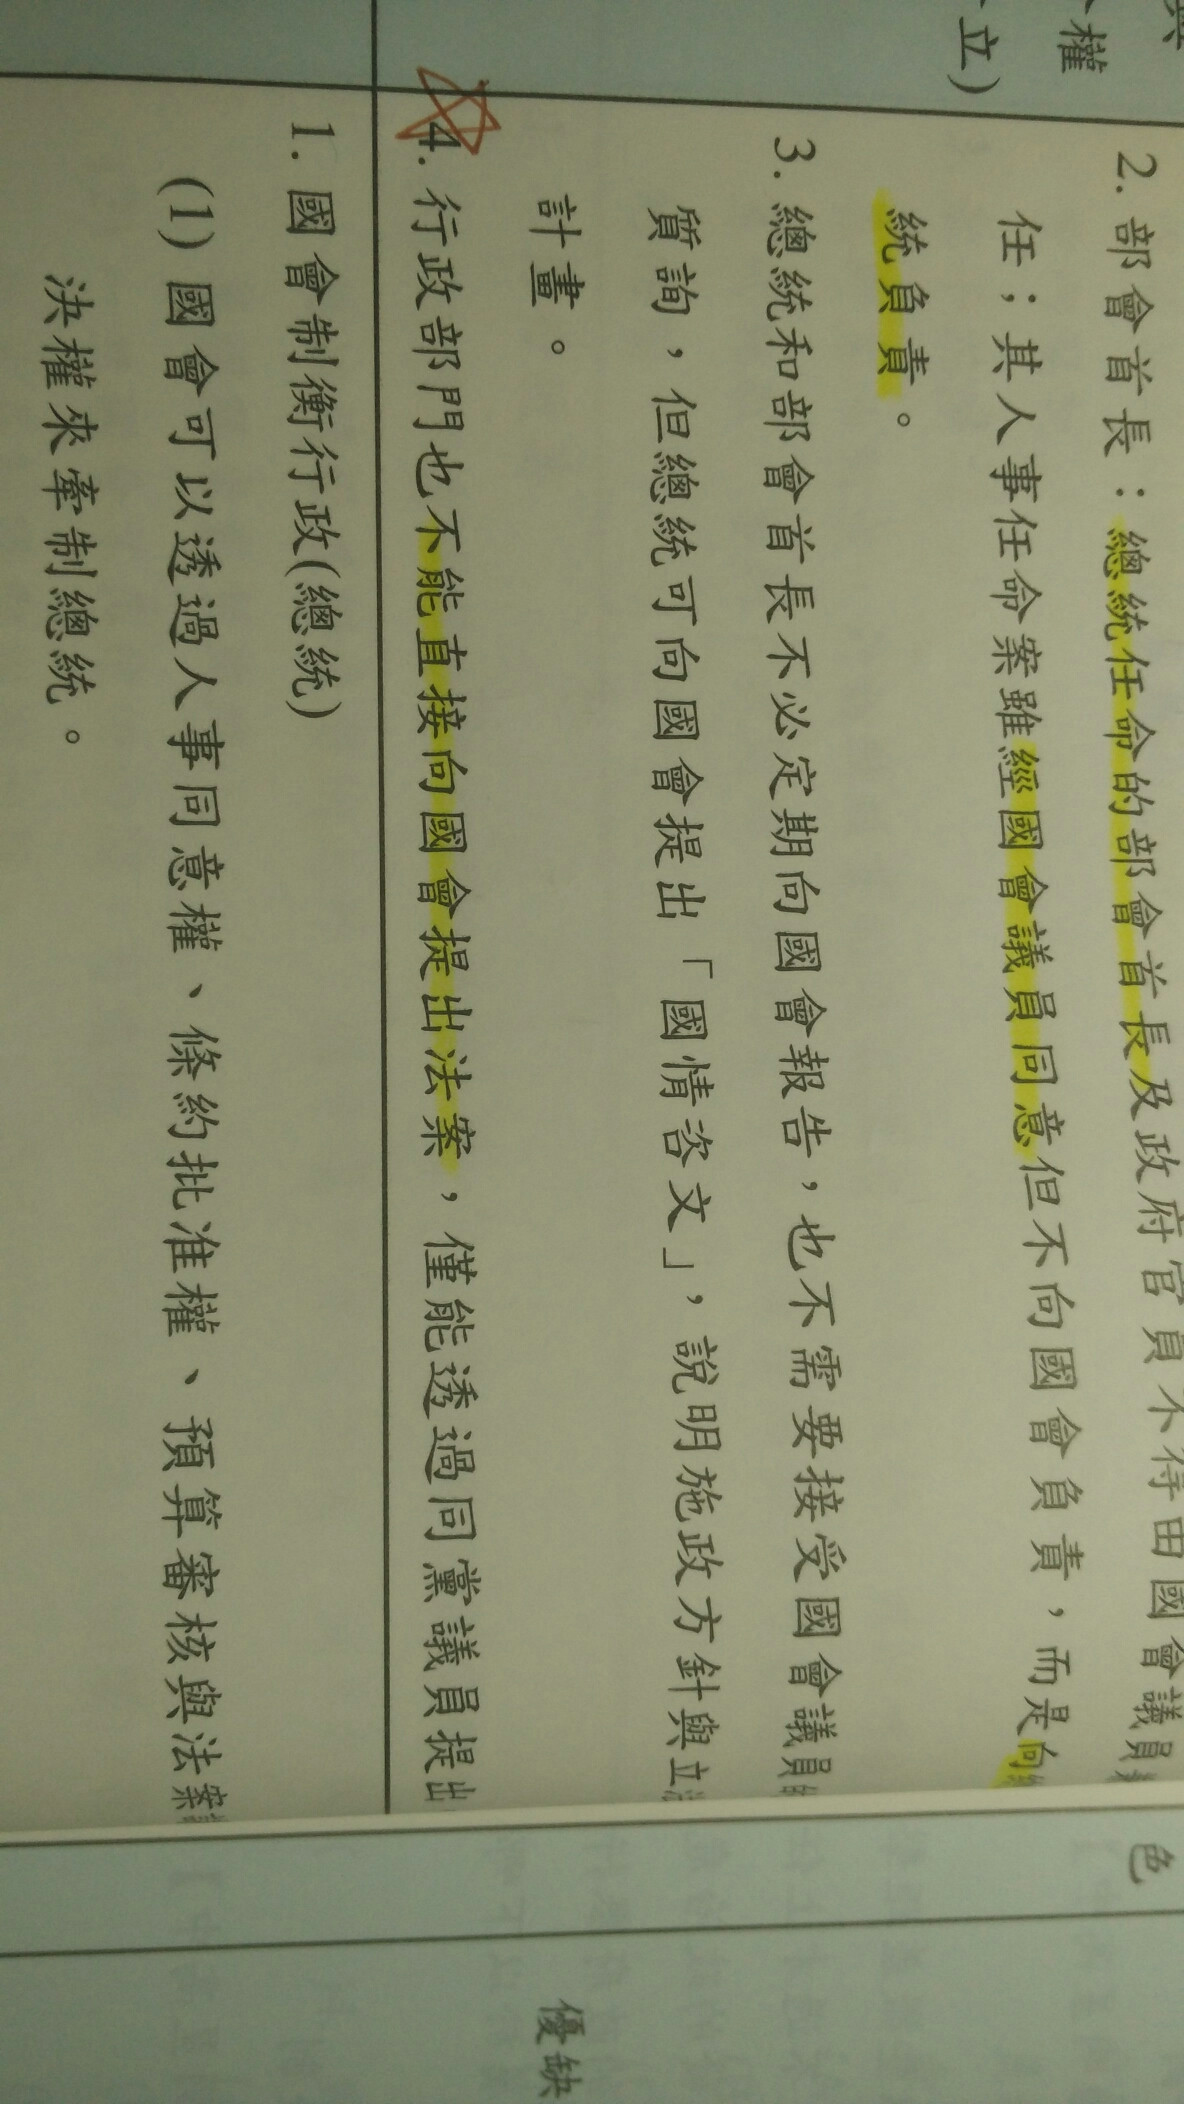 權
立)
2. 部會首長：總統任命的部會首長及政府官員不得由國會議員
任；其人事任命案雖經國會議員同意但不向國會負責，而是向
統負責。
3. 總統和部會首長不必定期向國會報告，也不需要接受國會議員的
質詢，但總統可向國會提出「國情咨文」，說明施政方針與立
計畫。
4. 行政部門也不能直接向國會提出法案，僅能透過同黨議員提出
1. 國會制衡行政(總統)
(1) 國會可以透過人事同意權、條約批准權、預算審核與法案
決權來牽制總統。
色
優缺